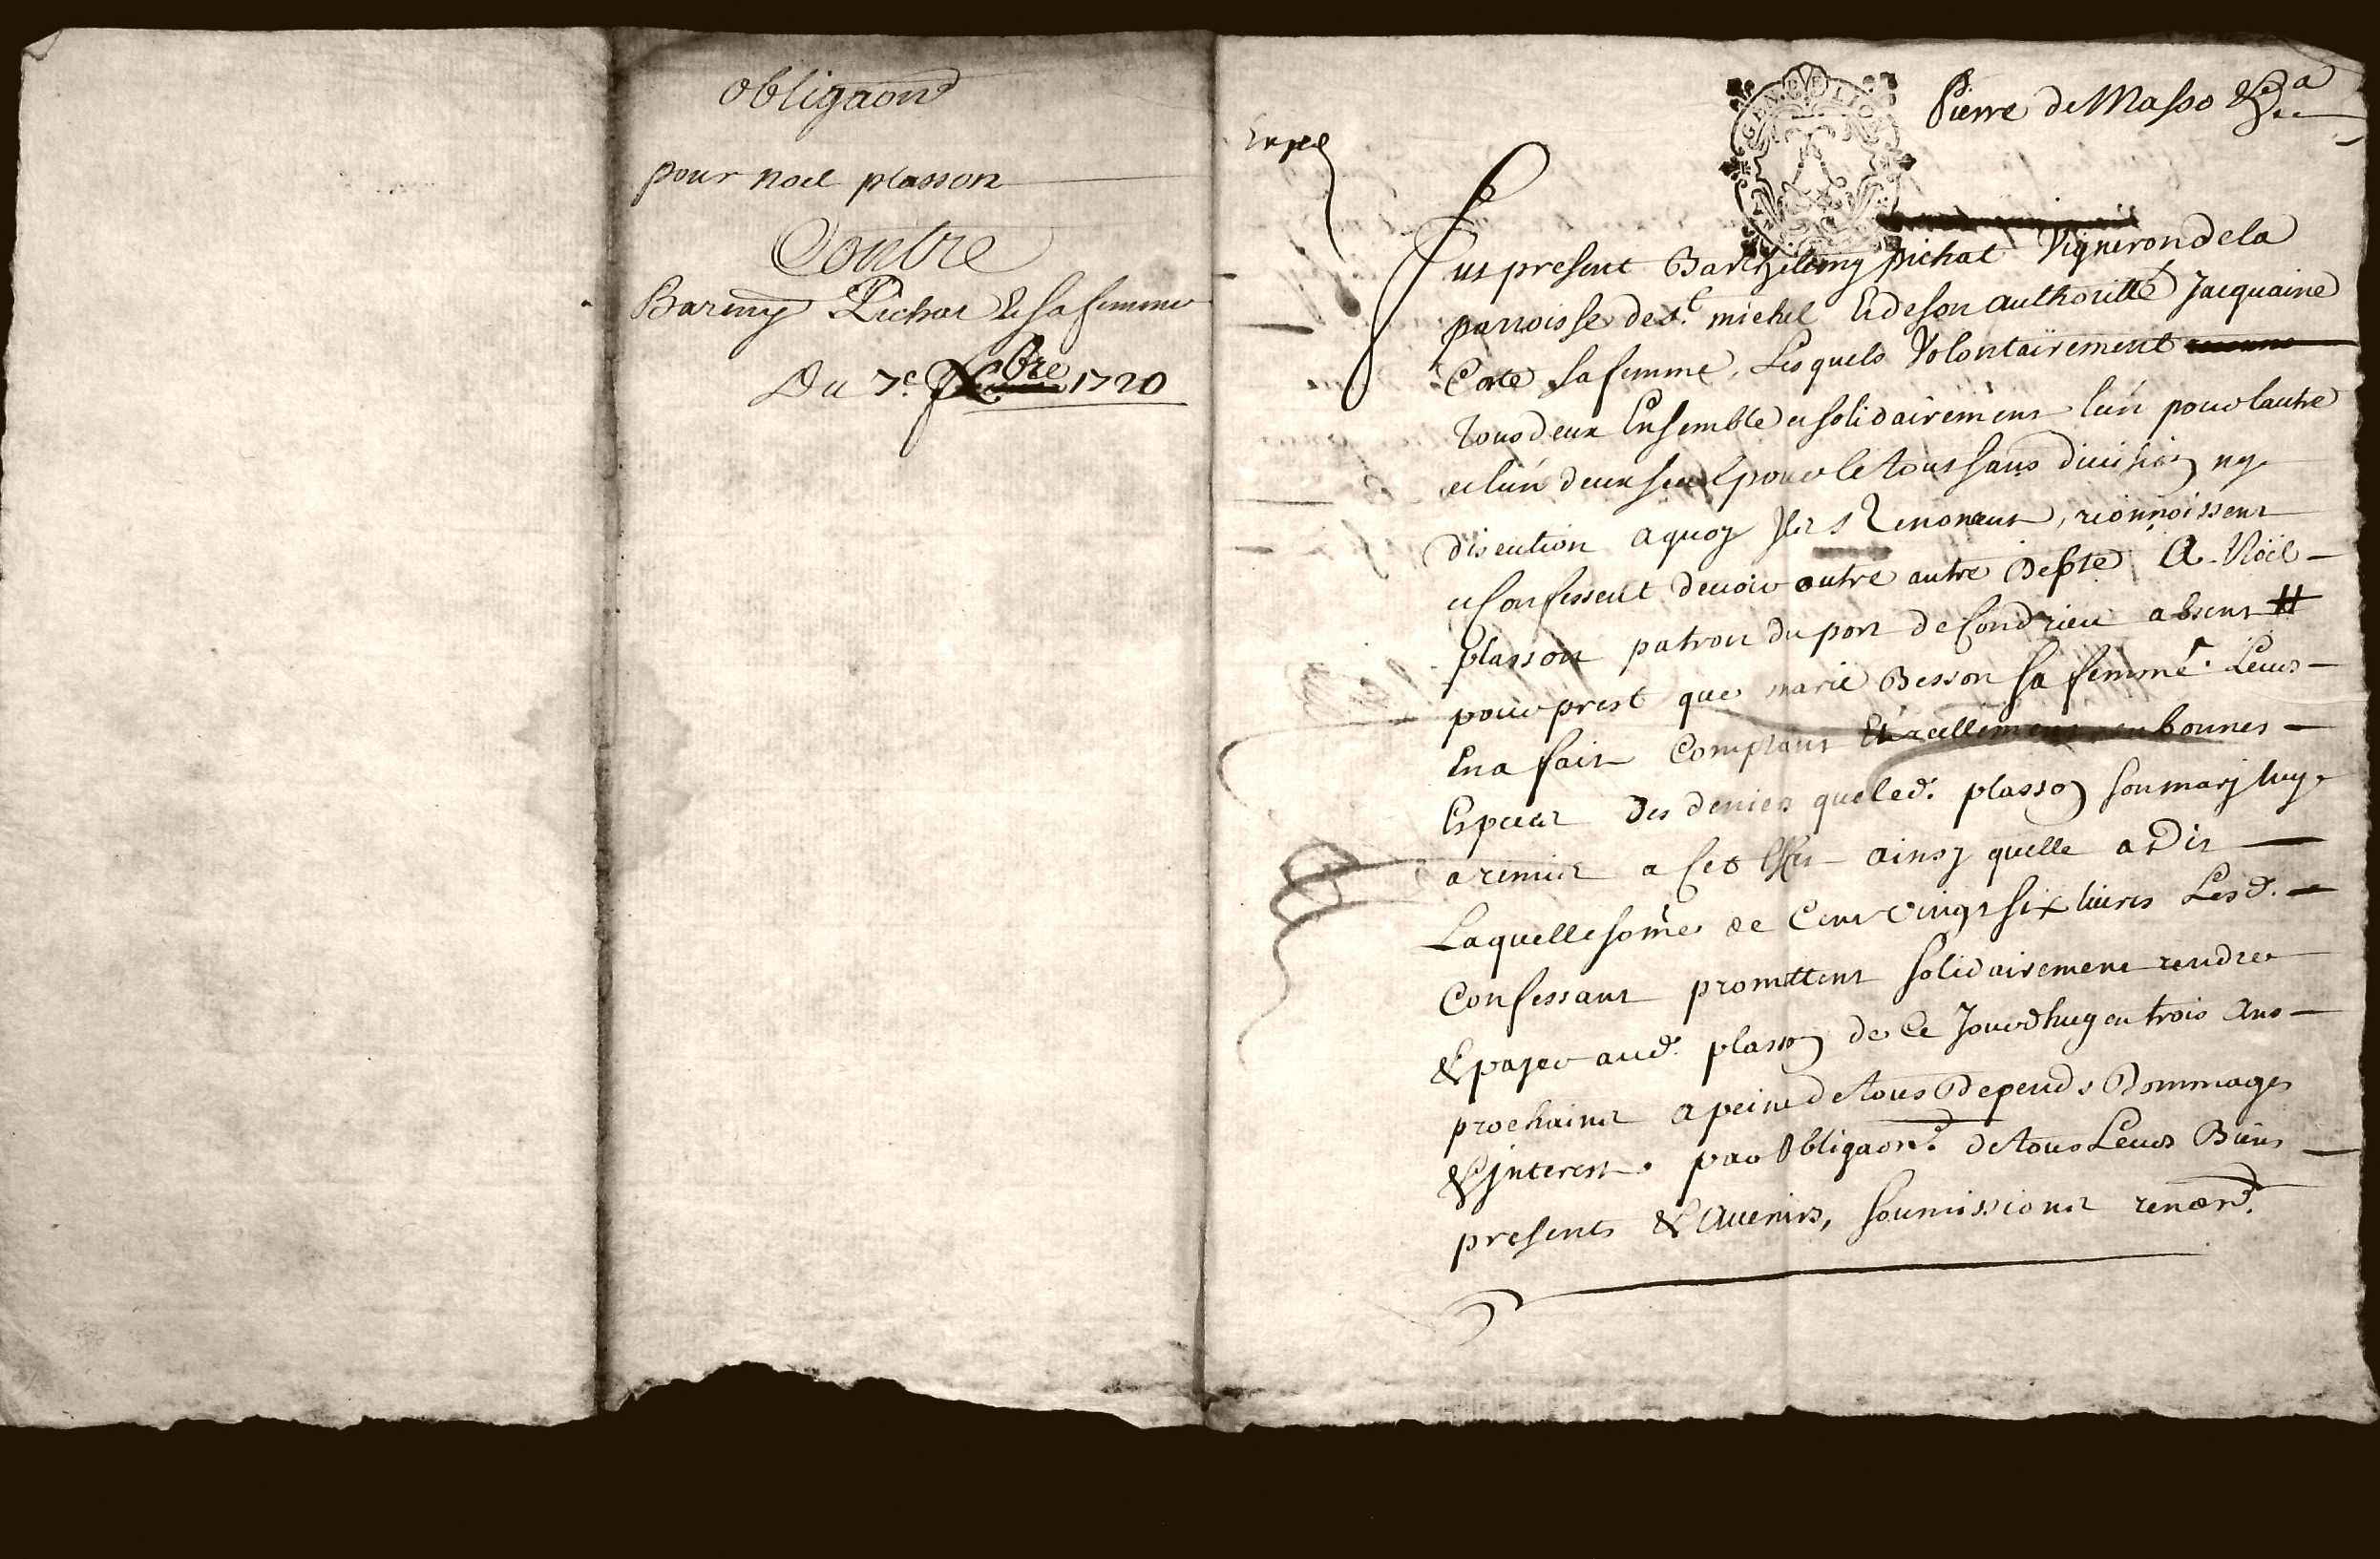 obligaon
pour noel plasson
Contre
Baremy Pichat & sa femme
Du 7e Xbre 1720
Expe
GEN DE LION
Pierre de Masso &a
Fut present Barthelemy pichat Vigneron dela
parroisse de st. michel & de son authoritté Jacquaine
Corte sa femme, Lesquels Volontairement
tous deux Ensemble et solidairement lun pour lautre
et lun deux seul pour le tout sans division ny
discution aquoy Ils Renoncent, reconnoissent
et Confessent devoir outre autre Depte A Noël
plasson patron du port de Condrieu absent #
pour prest que marie Besson sa femme Leurs
En a fait Comptant Et reellement en bonnes
Especes des deniers que led. plasson son mary luy
a remis a Cet Effet ainsy quelle a Dit
Laquelle some de Cent vingt six livres Lesd.
Confessant promettent solidairement rendre
& payer aud. plasson de Ce Jourdhuy en trois Ans
prochains a peine de tous Depends Dommages
& Interest. par Obligaon. de tous Leurs Biens
presents & Avenirs, soumissions renaon.